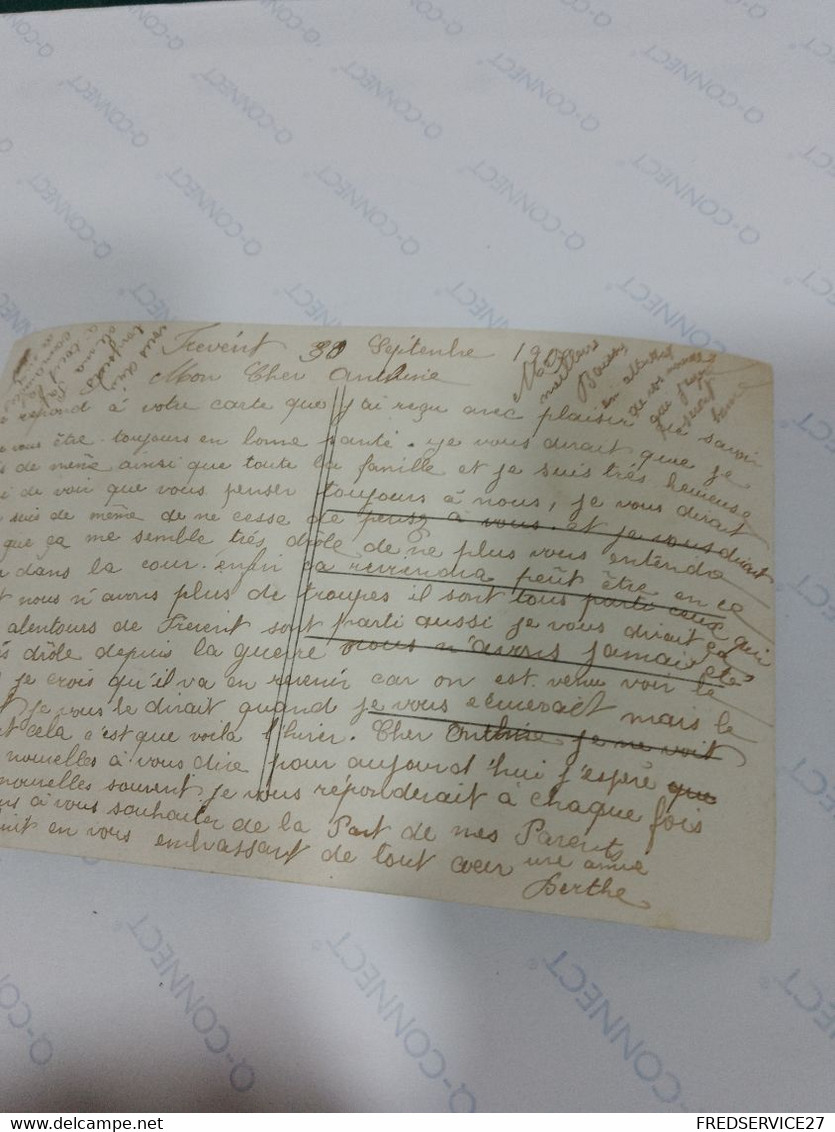 Frevent 30 Septembre 19
Mon Cher Anthine
repond à votre carte que j'ai reçu avec plaisir de savoir
vous être toujours en bonne santé. je vous dirait que je
de même ainsi que toute la famille et je suis très heureuse
de voir que vous penser toujours à nous, je vous dirait
suis de même de ne cesse de pensez à vous. et je vous dirait
que ça me semble très drôle de ne plus vous entendre
dans la cour. enfin ça reviendra peût être en ce
nous n'avons plus de troupes il sont tous parti ceux qui
alentours de Frevent sont parti aussi je vous dirait ça
drôle depuis la guerre nous n'avons jamais été
je crois qu'il va en revenir car on est venu voir le
je vous le dirait quand je vous écriverait mais le
cela c'est que voilà l'hiver. Cher Anthine je ne voit
nouvelles à vous dire pour aujourd'hui j'espère que
nouvelles souvent je vous réponderait à chaque fois
à vous souhaiter de la Part de mes Parents
en vous embrassant de tout cœur une amie
Berthe
Mes
meilleurs
Baisers
en attendant
de vos nouvelles
Q-CONNECT
delcampe.net
FREDSERVICE27